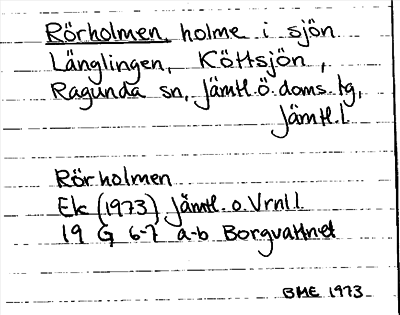 Rörholmen, holme i sjön
Länglingen, Köttsjön,
Ragunda sn, Jämtl. Ö. doms. tg,
Jämtl. l.
Rörholmen
Ek (1973) Jämtl. o. Vrnl l.
19 G 6-7 a-b Borgvattnet
BME 1973